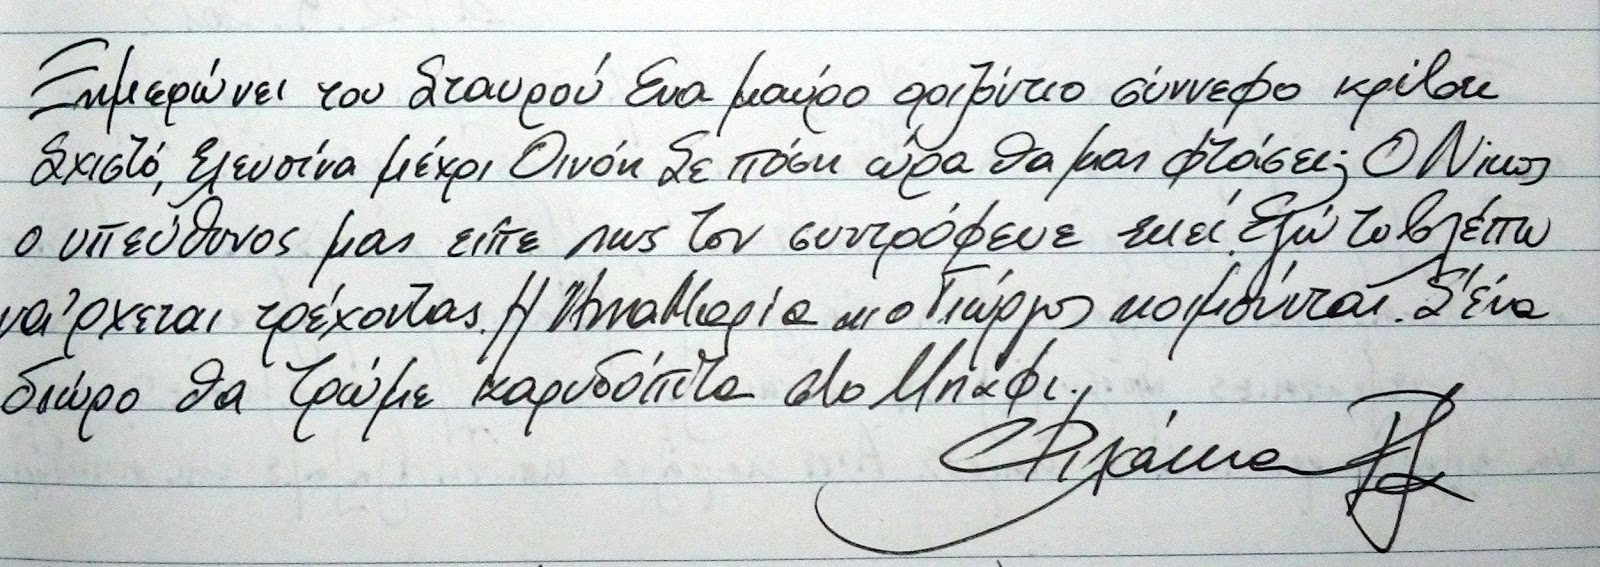 Ξημερώνει του Σταυρού Ένα μαύρο οριζόντιο σύννεφο κρύβει
Σχιστό, Ελευσίνα μέχρι Οινόη Σε πόση ώρα θα μας φτάσει; Ο Νίκος
ο υπεύθυνος μας είπε πως τον συντρόφευε εκεί. Εγώ το βλέπω
να 'ρχεται τρέχοντας. Η ΆνναΜαρία κι ο Γιώργος κοιμούνται. Σ' ένα
δίωρο θα τρώμε καρυδόπιτα στο Μπάφι.
Φιλάκια